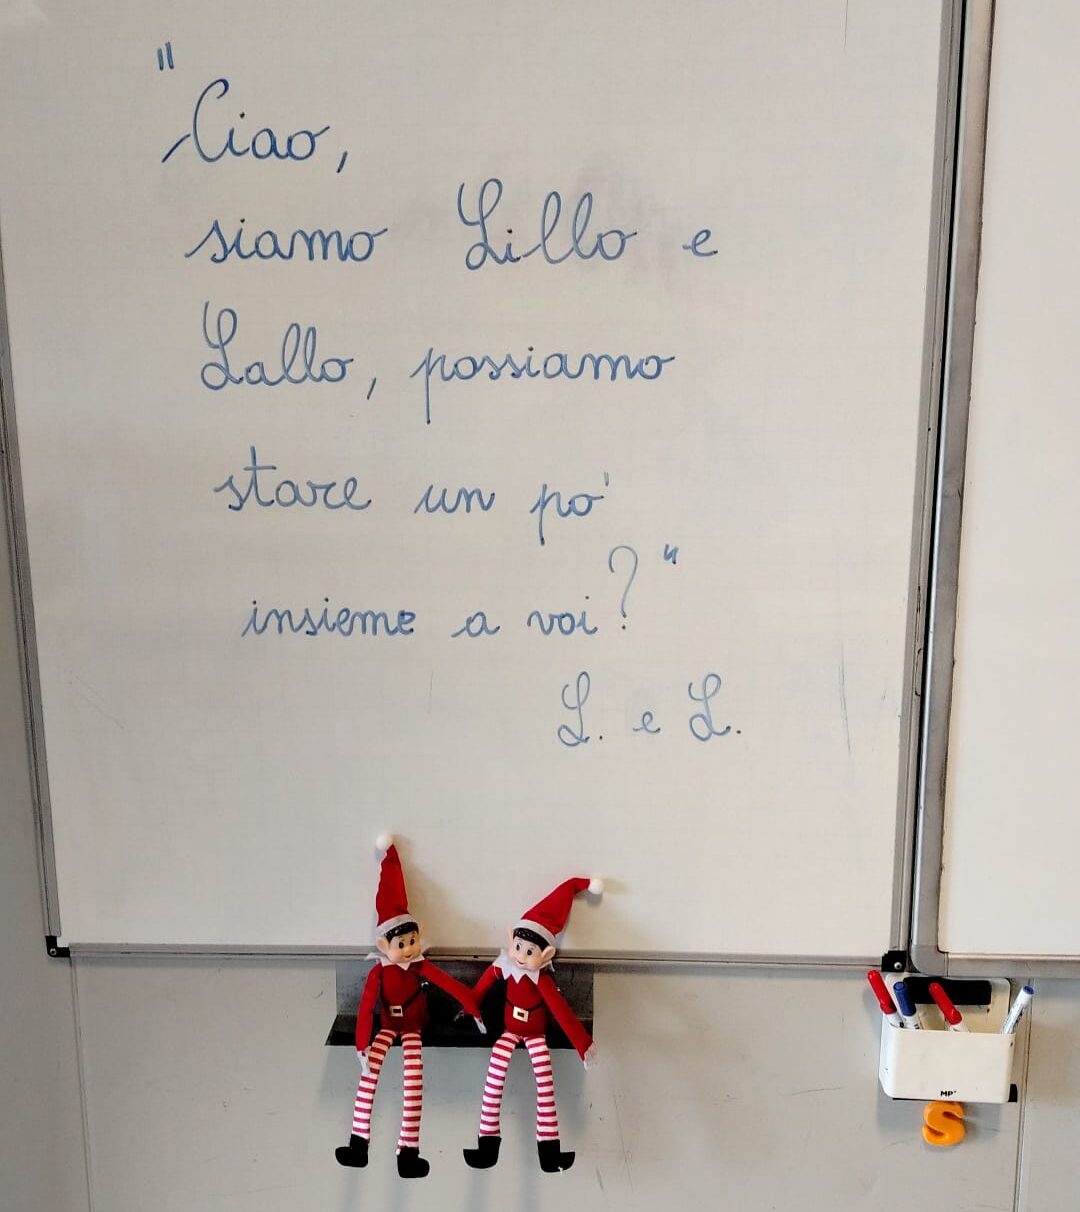 "Ciao,
siamo Lillo e
Lallo, possiamo
stare un po'
insieme a voi?"
L. e L.
MP
S